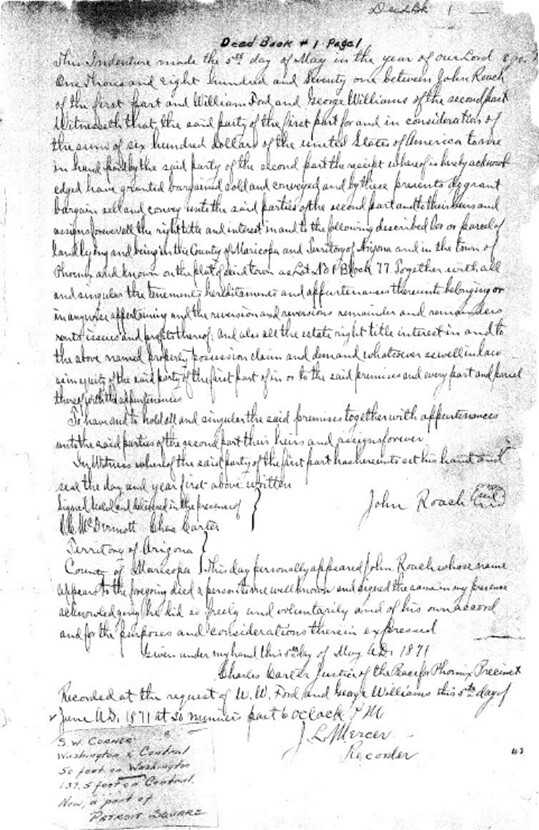 Deed Bk 1
Deed Book #1 Page 1
This Indenture made the 5th day of May in the year of our Lord
One Thousand eight hundred and Seventy one between John Roach
of the first part and William Ford and George Williams of the second part
Witnesseth that the said party of the first part for and in consideration of
the sum of six hundred dollars of the United States of America to me
in hand paid by the said party of the second part the receipt whereof is hereby acknowl
edged have granted bargained sold and conveyed and by these presents do grant
bargain sell and convey unto the said parties of the second part and to their heirs and
assigns forever all the right title and interest in and to the following described lot or parcel of
land lying and being in the County of Maricopa and Territory of Arizona and in the town of
Phoenix and known on the plat of said town as Lot No Block 77 Together with all
and singular the tenements hereditements and appurtenances thereunto belonging or
in anywise appertaining and the reversion and reversions remainder and remainders
rents issues and profits thereof; and also all the estate right title interest in and to
the above named property possession claim and demand whatsoever as well in law
as in equity of the said party of the first part of in or to the said premises and every part and parcel
thereof with the appurtenances
To have and to hold all and singular the said premises together with appurtenances
unto the said parties of the second part their heirs and assigns forever
In Witness whereof the said party of the first part has hereunto set his hand and
seal the day and year first above written
Signed sealed and delivered in the presence of
John Roach Seal
McDermott Chas Carter
Territory of Arizona
County of Maricopa This day personally appeared John Roach whose name
appears to the foregoing deed a person to me well known and signed the same in my presence
acknowledging he did is freely and voluntarily and of his own accord
and for the purposes and considerations therein expressed
Given under my hand this 5th day of May A.D. 1871
Charles Carter Justice of the Peace for Phoenix Precinct
Recorded at the request of W. W. Ford and George Williams this 5th day of
June A.D. 1871 at 50 minutes past 6 oclock P.M.
J. L. Mercer
Recorder
S.W. Corner
Washington & Central
50 foot on Washington
137.5 foot on Central.
Now, a part of
PATRIOT SQUARE